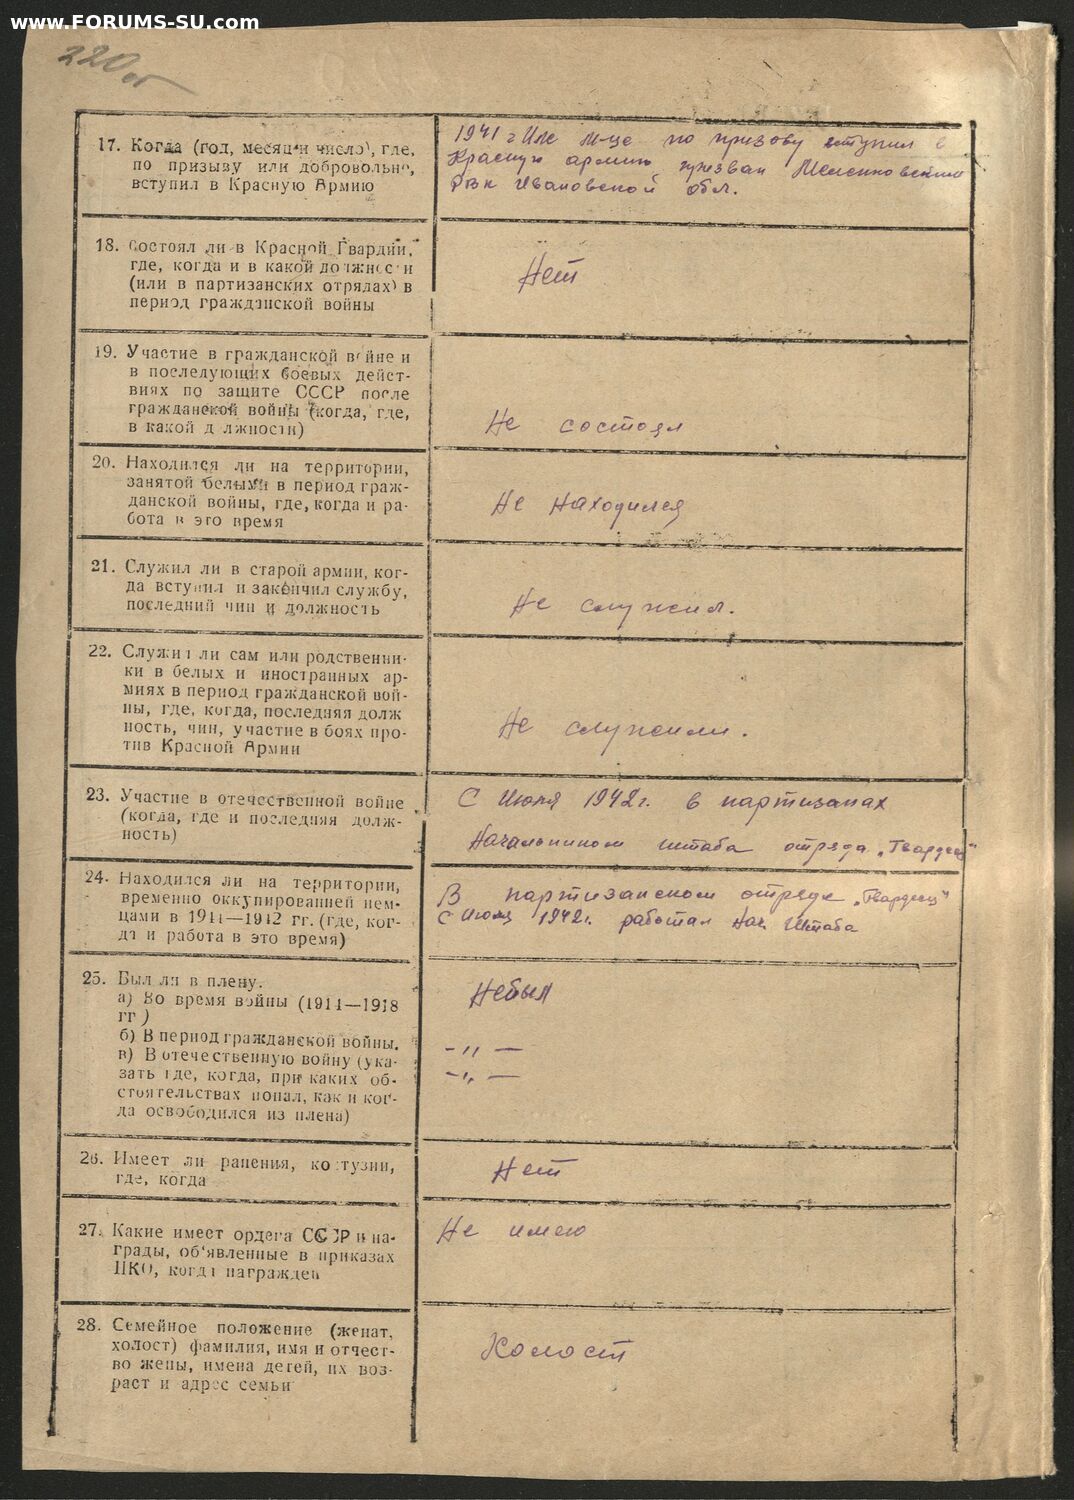 www.FORUMS-SU.com
220об
17. Когда (год, месяц и число), где,
по призыву или добровольно,
вступил в Красную Армию
1941 г Июле М-це по призову вступил в
Красную армию призван Меленковским
РВК Ивановской обл.
18. Состоял ли в Красной Гвардии,
где, когда и в какой должности
(или в партизанских отрядах) в
период гражданской войны
Нет
19. Участие в гражданской войне и
в последующих боевых дейст-
виях по защите СССР после
гражданской войны (когда, где,
в какой должности)
Не состоял
20. Находился ли на территории,
занятой белыми в период граж-
данской войны, где, когда и ра-
бота в это время
Не находился
21. Служил ли в старой армии, ког-
да вступил и закончил службу,
последний чин и должность
Не служил.
22. Служил ли сам или родственни-
ки в белых и иностранных ар-
миях в период гражданской вой-
ны, где, когда, последняя долж
ность, чин, участие в боях про-
тив Красной Армии
Не служили.
23. Участие в отечественной войне
(когда, где и последняя долж-
ность)
С Июля 1942г. в партизанах
Начальником штаба отряда „Гвардеец"
24. Находился ли на территории,
временно оккупированней нем-
цами в 1941—1942 гг. (где, ког-
да и работа в это время)
В партизанском отряде „Гвардеец"
С Июля 1942г. работал Нач. Штаба
25. Был ли в плену.
а) Во время войны (1914—1918
гг)
б) В период гражданской войны.
в) В отечественную войну (ука-
зать где, когда, при каких об-
стоятельствах попал, как и ког-
да освободился из плена)
Небыл
-„—
-„—
26. Имеет ли ранения, контузии,
где, когда
Нет
27. Какие имеет ордега СССР и на-
грады, об'явленные в приказах
НКО, когда награжден
Не имею
28. Семейное положение (женат,
холост) фамилия, имя и отчест-
во жены, имена детей, их воз-
раст и адрес семьи
Холост